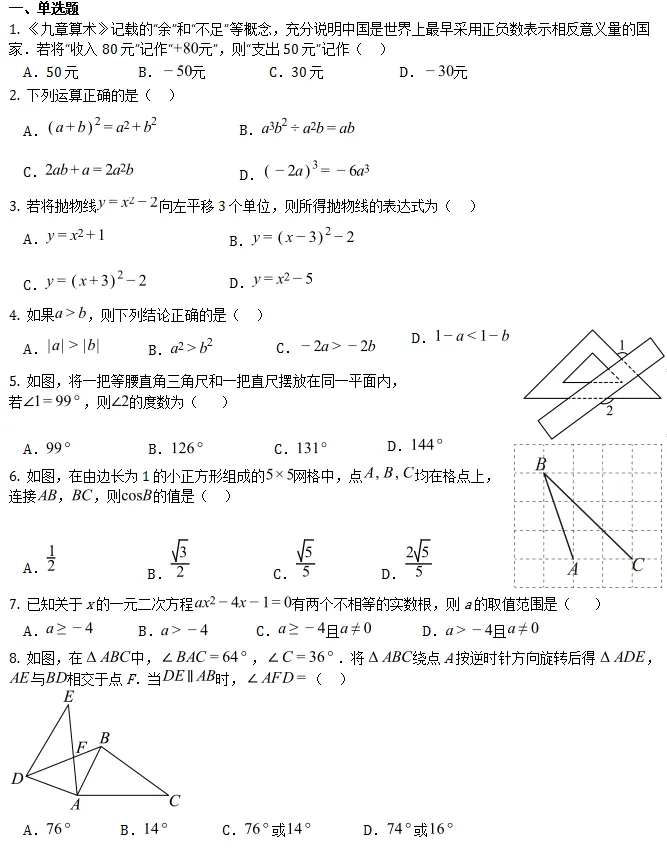 一、单选题
1. 《九章算术》记载的“余”和“不足”等概念，充分说明中国是世界上最早采用正负数表示相反意义量的国
家．若将“收入 80 元”记作“+80元”，则“支出 50 元”记作（ ）
A．50 元 B．－50元 C．30 元 D．－30元
2. 下列运算正确的是（ ）
A．(a+b)²=a²+b² B．a³b²÷a²b=ab
C．2ab+a=2a²b D．(－2a)³=－6a³
3. 若将抛物线y=x²－2向左平移 3 个单位，则所得抛物线的表达式为（ ）
A．y=x²+1 B．y=(x－3)²－2
C．y=(x+3)²－2 D．y=x²－5
4. 如果a>b，则下列结论正确的是（ ）
A．|a|>|b| B．a²>b² C．－2a>－2b D．1－a<1－b
5. 如图，将一把等腰直角三角尺和一把直尺摆放在同一平面内，
若∠1=99°，则∠2的度数为（ ）
1
2
A．99° B．126° C．131° D．144°
6. 如图，在由边长为 1 的小正方形组成的5×5网格中，点A，B，C均在格点上，
连接AB，BC，则cosB的值是（ ）
B
A C
A．1/2 B．√3/2 C．√5/5 D．2√5/5
7. 已知关于 x 的一元二次方程ax²－4x－1=0有两个不相等的实数根，则 a 的取值范围是（ ）
A．a≥－4 B．a>－4 C．a≥－4且a≠0 D．a>－4且a≠0
8. 如图，在△ABC中，∠BAC=64°，∠C=36°．将△ABC绕点 A 按逆时针方向旋转后得△ADE，
AE与BD相交于点 F．当DE∥AB时，∠AFD=（ ）
E
F B
D
A C
A．76° B．14° C．76°或14° D．74°或16°